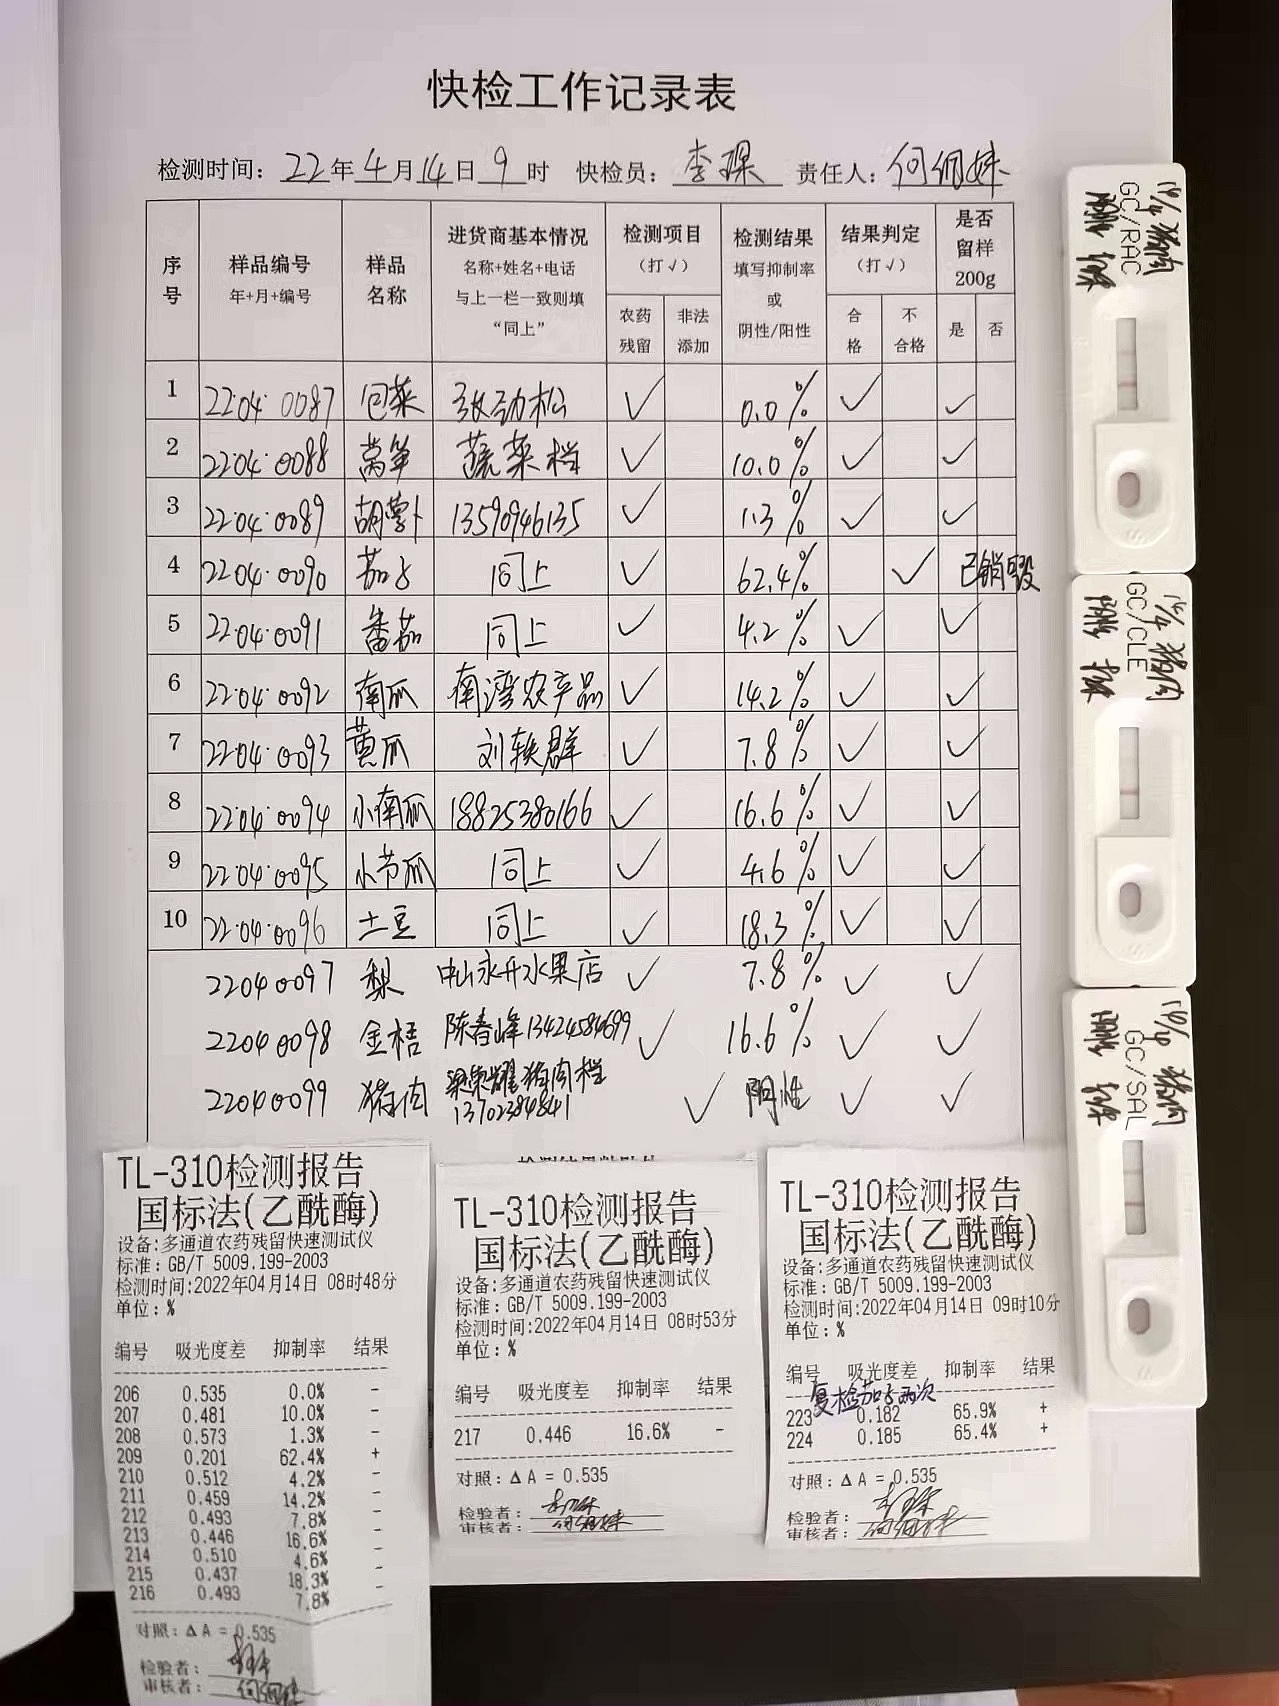 快检工作记录表
检测时间: 22年4月14日9时 快检员: 李琛 责任人: 何佩妹
序号 样品编号 年+月+编号 样品名称 进货商基本情况 名称+姓名+电话 与上一栏一致则填“同上” 检测项目（打√） 农药残留 非法添加 检测结果 填写抑制率或阴性/阳性 结果判定（打√） 合格 不合格 是否留样200g 是 否
1 22·04·0087 包菜 张劲松 √ 0.0% √ √
2 22·04·0088 莴笋 蔬菜档 √ 10.0% √ √
3 22·04·0089 胡萝卜 13590946135 √ 1.3% √ √
4 22·04·0090 茄子 同上 √ 62.4% √ 已销毁
5 22·04·0091 番茄 同上 √ 4.2% √ √
6 22·04·0092 南瓜 南湾农产品 √ 14.2% √ √
7 22·04·0093 黄瓜 刘轶群 √ 7.8% √ √
8 22·04·0094 小南瓜 18825380166 √ 16.6% √ √
9 22·04·0095 小节瓜 同上 √ 4.6% √ √
10 22·04·0096 土豆 同上 √ 18.3% √ √
22040097 梨 中山永升水果店 √ 7.8% √ √
22040098 金桔 陈春峰13424584699 √ 16.6% √ √
22040099 猪肉 梁荣耀猪肉档 13702384841 √ 阴性 √ √
TL-310检测报告
国标法(乙酰酶)
设备:多通道农药残留快速测试仪
标准: GB/T 5009.199-2003
检测时间:2022年04月14日 08时48分
单位: %
编号 吸光度差 抑制率 结果
206 0.535 0.0% -
207 0.481 10.0% -
208 0.573 1.3% -
209 0.201 62.4% +
210 0.512 4.2% -
211 0.459 14.2% -
212 0.493 7.8% -
213 0.446 16.6% -
214 0.510 4.6% -
215 0.437 18.3% -
216 0.493 7.8% -
对照: Δ A = 0.535
检验者:
审核者: 何佩妹
TL-310检测报告
国标法(乙酰酶)
设备:多通道农药残留快速测试仪
标准: GB/T 5009.199-2003
检测时间:2022年04月14日 08时53分
单位: %
编号 吸光度差 抑制率 结果
217 0.446 16.6% -
对照: Δ A = 0.535
检验者:
审核者: 何佩妹
TL-310检测报告
国标法(乙酰酶)
设备:多通道农药残留快速测试仪
标准: GB/T 5009.199-2003
检测时间:2022年04月14日 09时10分
单位: %
编号 吸光度差 抑制率 结果
复检茄子两次
223 0.182 65.9% +
224 0.185 65.4% +
对照: Δ A = 0.535
检验者:
审核者: 何佩妹
14/4 猪肉
GC/RAC
阴性
14/4 猪肉
GC/CLE
阴性
14/4 猪肉
GC/SAL
阴性